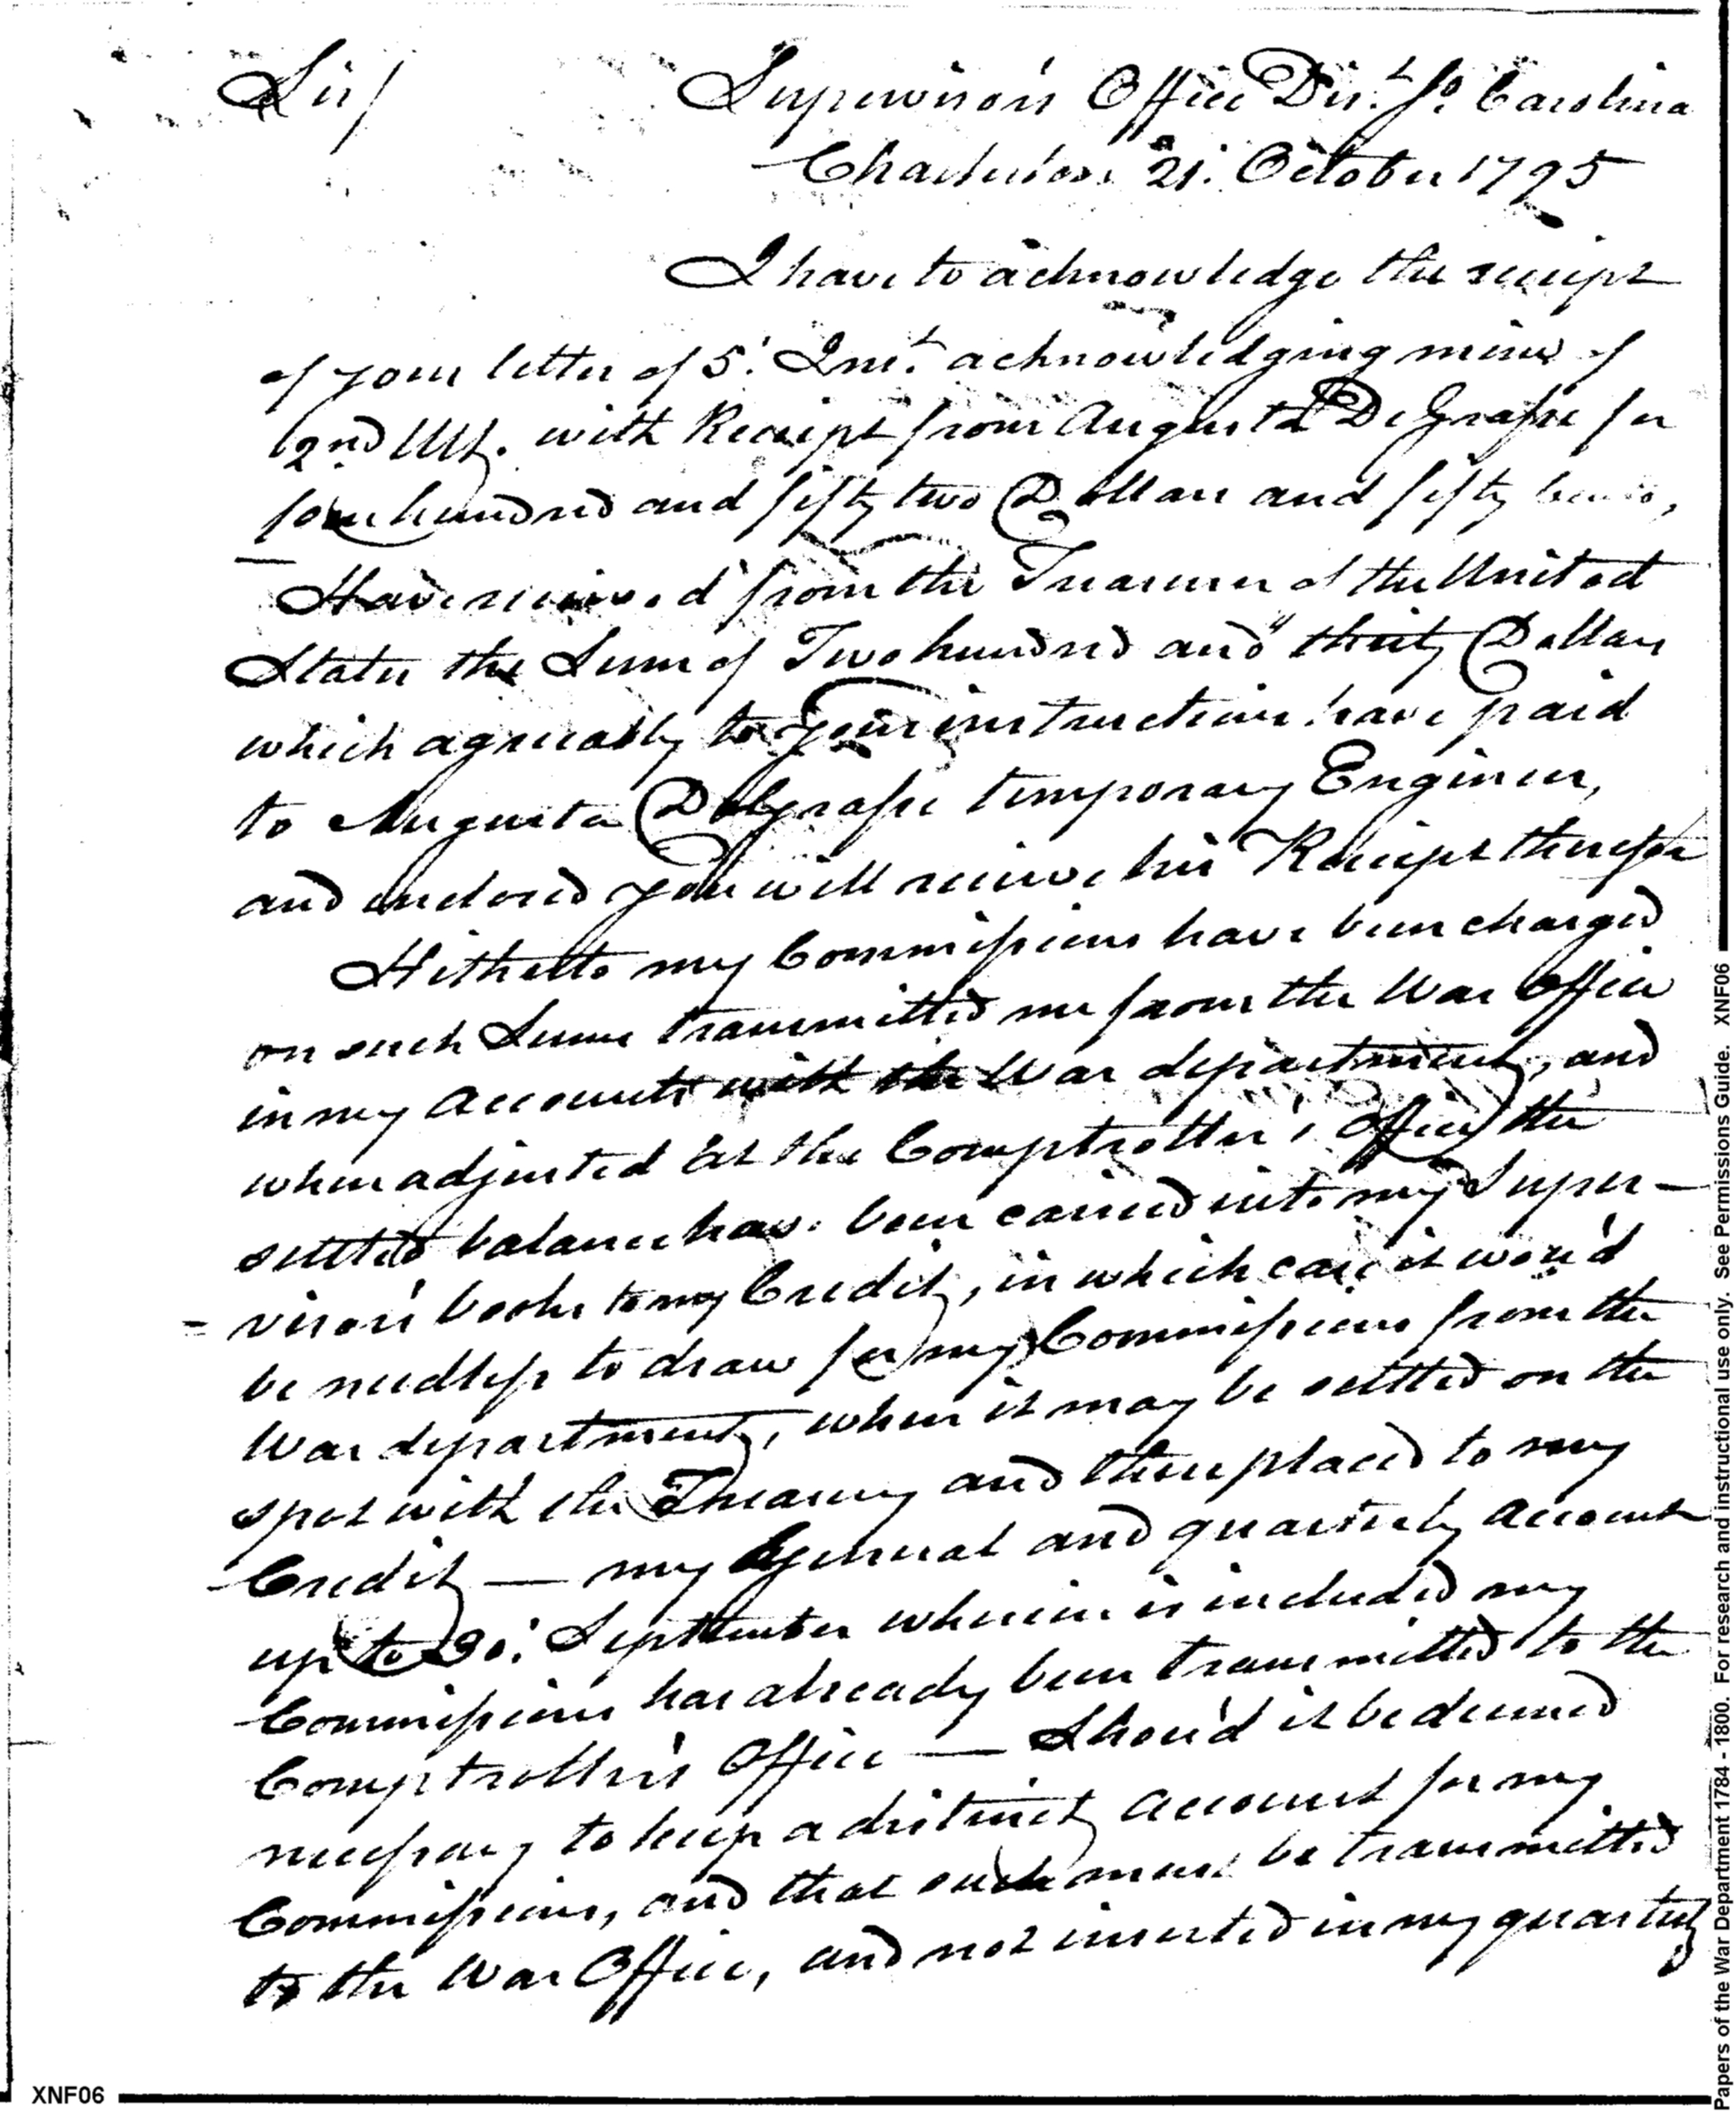 Sir/
Supervisor's Office Dis.t So. Carolina
Charleston 21. October 1795
I have to acknowledge the receipt
of your letter of 5.' Ins.t acknowledging mine of
2nd Ult. with Receipt from Augusta De Grasse for
four hundred and fifty two Dollars and fifty Cents,
Have received from the Treasurer of the United
States the Sum of Two hundred and thirty Dollars
which agreeably to your instructions have paid
to Augusta Degrasse temporary Engineer,
and enclosed you will receive his Receipt therefor
Hitherto my Commissions have been charged
on such Sums transmitted me from the War Office
in my Accounts with the War department, and
when adjusted at the Comptroller's Office, the
settled balance has been carried into my Super-
=visor's books to my Credit, in which case it wou'd
be needless to draw for my Commissions from the
War department, when it may be settled on the
spot with the Treasury and then placed to my
Credit — my General and quarterly Account
up to 30.' September wherein is included my
Commissions has already been transmitted to the
Comptroller's Office — Shou'd it be deemed
necessary to keep a distinct Account for my
Commissions, and that such must be transmitted
to the War Office, and not inserted in my quarterly
XNF06
Papers of the War Department 1784 - 1800. For research and instructional use only. See Permissions Guide. XNF06